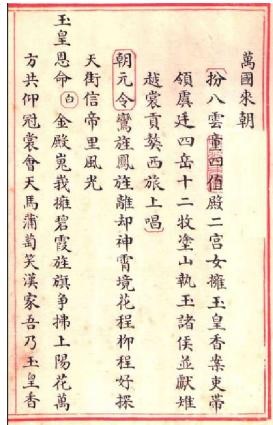 萬國來朝
扮八雲童四值殿二宮女擁玉皇香案吏帶
領虞廷四岳十二牧塗山執玉諸侯並獻雉
越裳貢獒西旅上唱
朝元令鸞旌鳳旌離却神霄境花程柳程好探
天街信帝里風光
玉皇恩命白金殿嵬我擁碧霞旌旗争拂上陽花萬
方共仰冠裳會天馬蒲萄笑漢家吾乃玉皇香